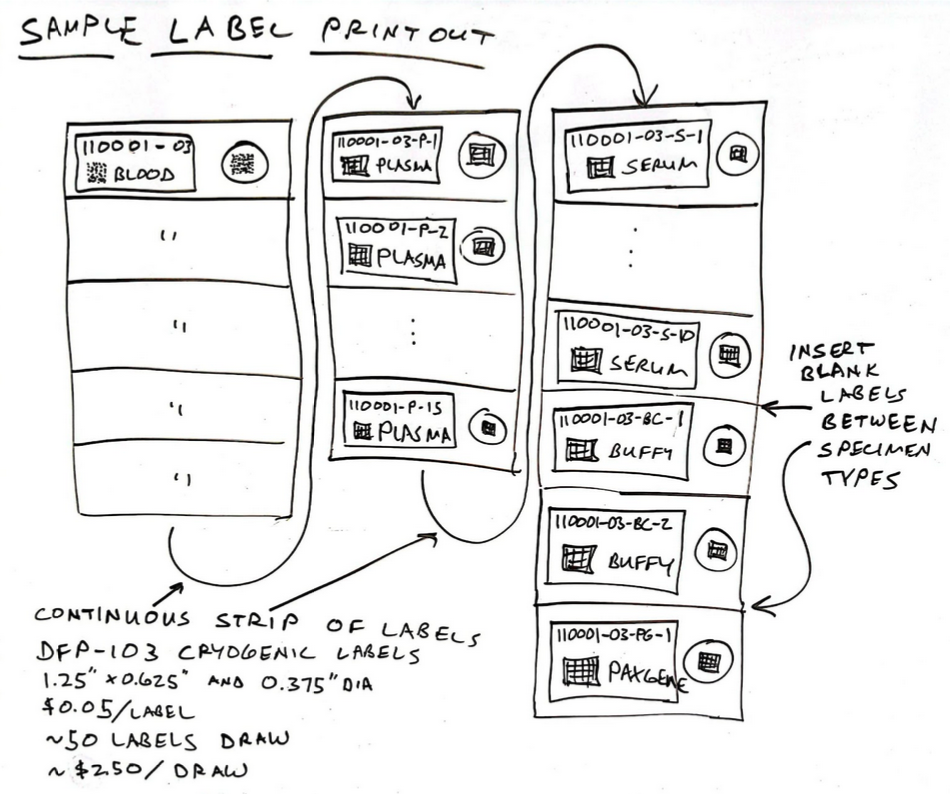 SAMPLE LABEL PRINTOUT
110001-03
BLOOD
"
"
"
"
110001-03-P-1
PLASMA
110001-P-2
PLASMA
110001-P-15
PLASMA
110001-03-S-1
SERUM
110001-03-S-10
SERUM
110001-03-BC-1
BUFFY
110001-03-BC-2
BUFFY
110001-03-PG-1
PAXGENE
INSERT
BLANK
LABELS
BETWEEN
SPECIMEN
TYPES
CONTINUOUS STRIP OF LABELS
DFP-103 CRYOGENIC LABELS
1.25" x 0.625" AND 0.375" DIA
$0.05/LABEL
~50 LABELS DRAW
~$2.50/DRAW